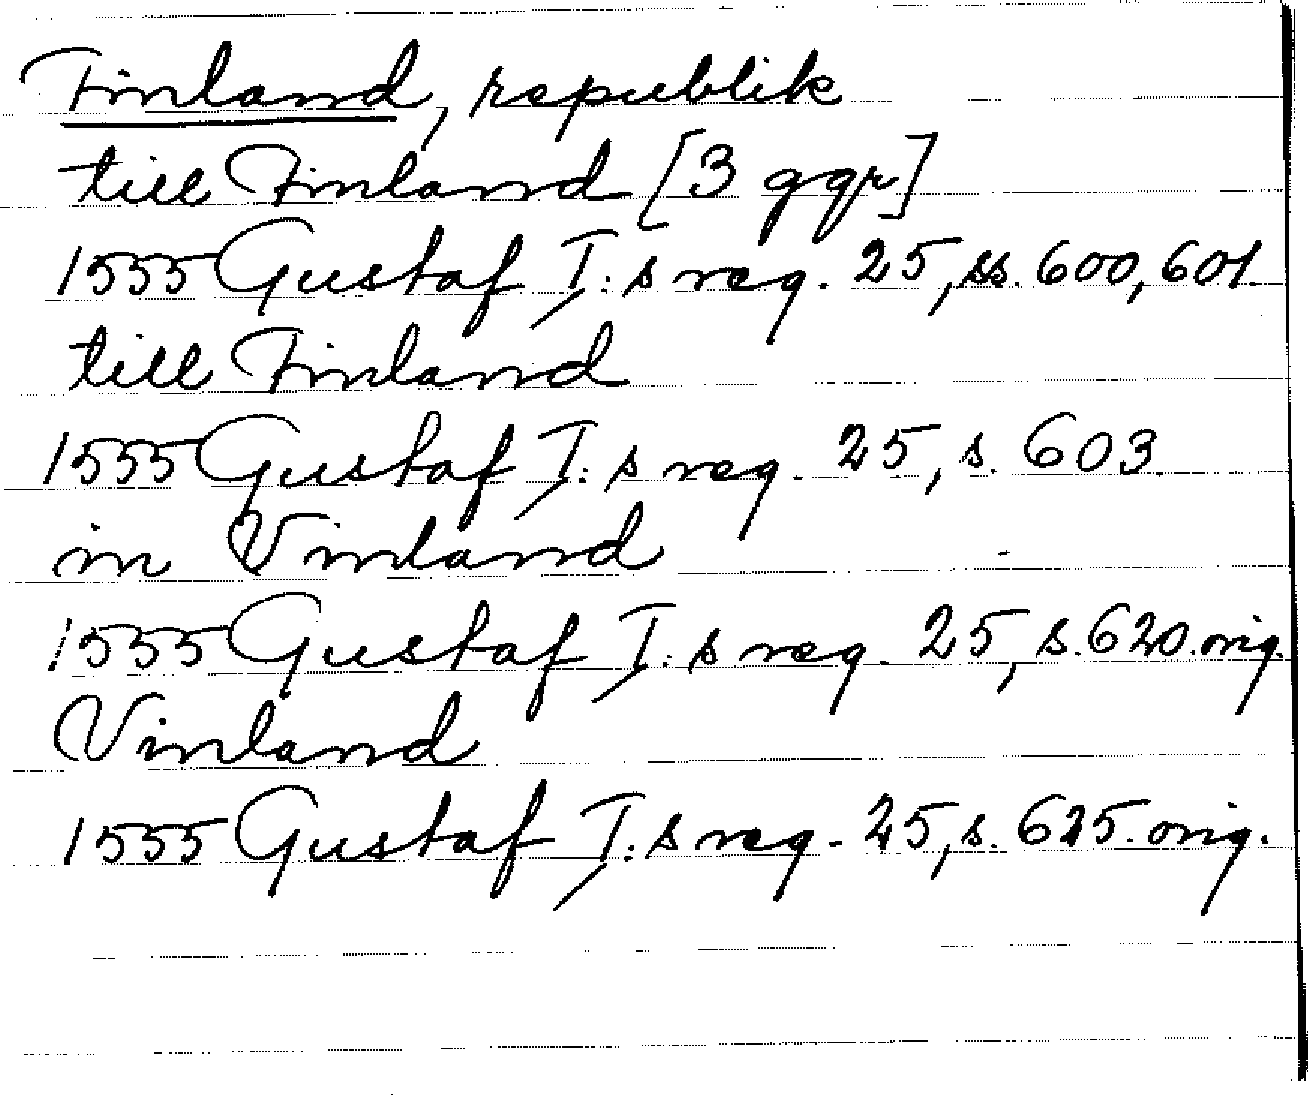 Finland, republik
till Finland [3 ggr]
1555 Gustaf I:s reg. 25, ss. 600, 601.
till Finland
1555 Gustaf I:s reg. 25, s. 603.
in Vinland
1555 Gustaf I:s reg. 25, s. 620. orig.
Vinland
1555 Gustaf I:s reg. 25, s. 625. orig.